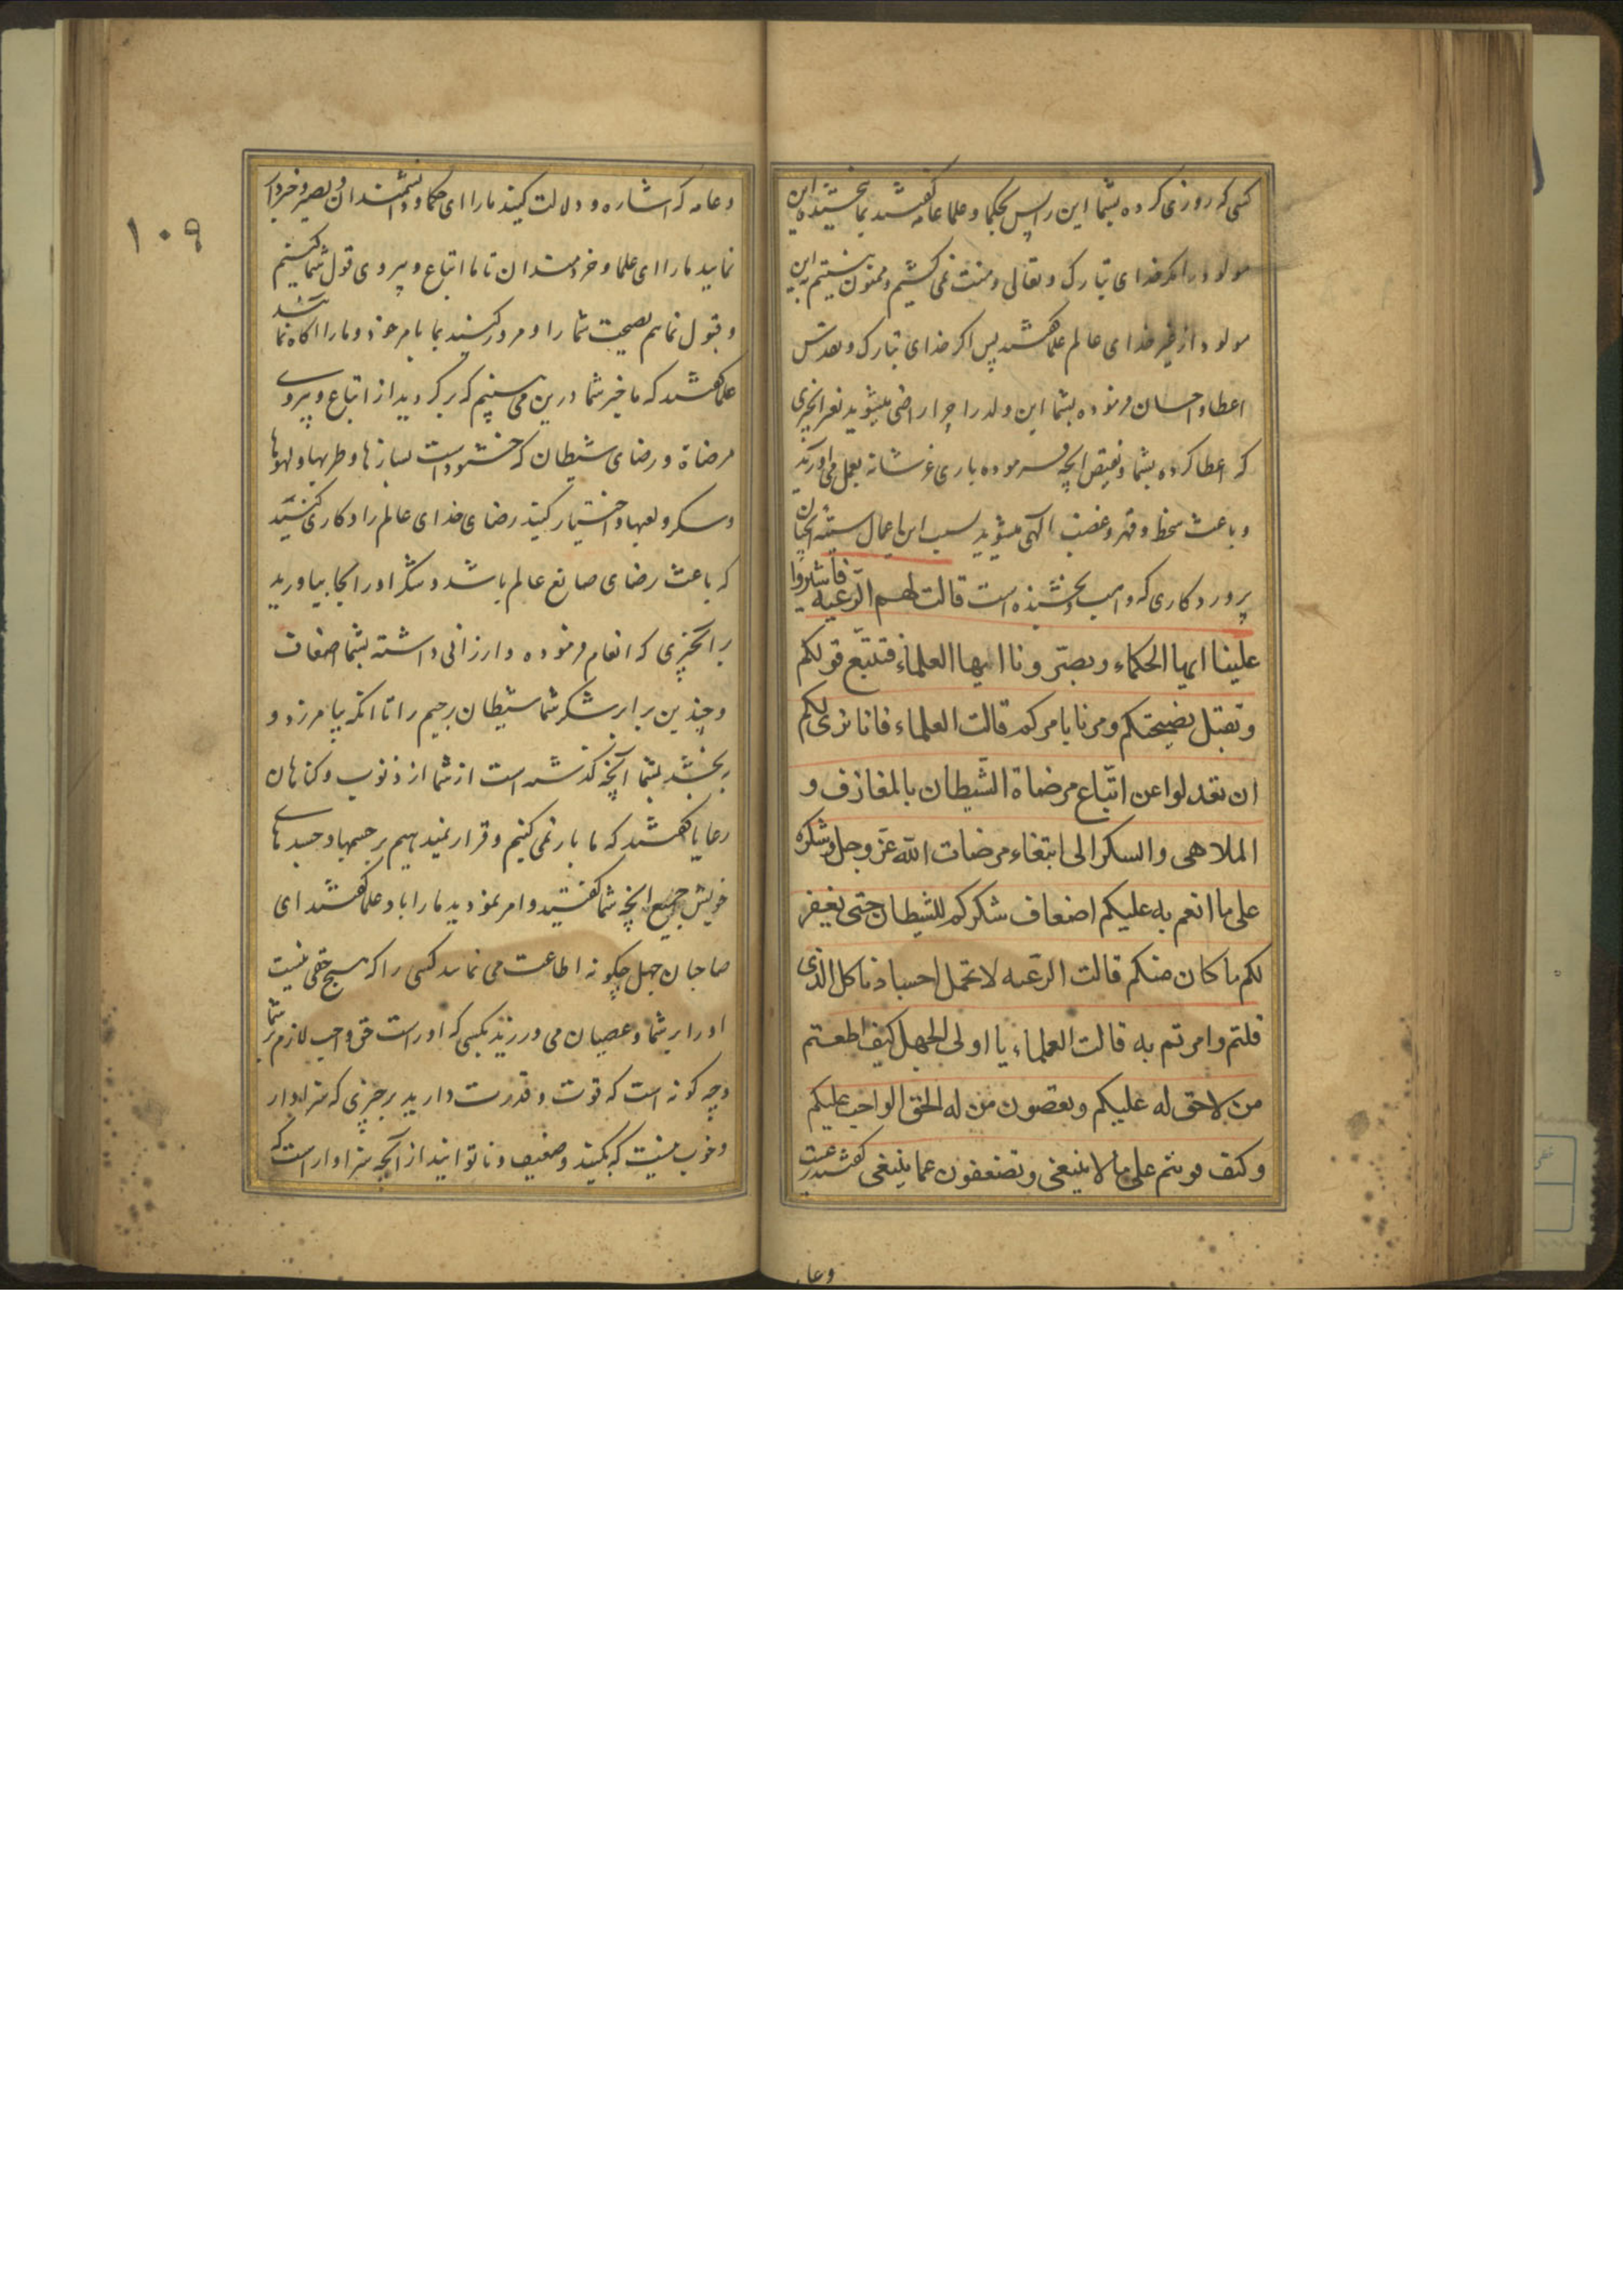 کسی که روزی کرده بشما این را پس حکما و علما عامه گفتند بما نبخشیده این
مولود را مکر خدای تبارک و تعالی و منت نمی کشیم و ممنون نیستیم این
مولود از غیر خدای عالم علما گفتند پس اکر خدای تبارک و تقدس
اعطا و احسان فرموده بشما این ولد را چرا راضی میشوید بغیر انچیزی
که اعطا کرده بشما و نقیض انچه فرموده باری عز شانه بعمل می اورید
و باعث سخط و قهر و غضب الهی میشوید بسبب این اعمال سیئه انچنان
پروردکاری که واهب و بخشنده است قالت لهم الرعیه فاشیروا
علینا ایها الحکماء و بصّرونا ایها العلماء فنتّبع قولکم
و نقبل نصیحتکم و مرنا بامرکم قالت العلماء فانا نری لکم
ان تعدلوا عن اتّباع مرضاة الشّیطان بالمعازف و
الملاهی والسکر الی ابتغاء مرضات الله عزّ وجل و شکره
علی ما انعم به علیکم اضعاف شکرکم للشیطان حتی یغفر
لکم ما کان منکم قالت الرعّیه لا تحمل اجسادنا کل الذی
قلتم وامرتم به قالت العلماء یا اولی الجهل کیف اطعتم
من لاحق له علیکم و تعصون من له الحق الواجب علیکم
و کیف قویتم علی ما لا ینبغی و تضعفون عما ینبغی گفتند رعیت
وعا
۱۰۹
و عامه که اشاره و دلالت کنید ما را ای حکما و دانشمندان و بصیر و خبردار
نمایید ما را ای علما و خردمندان تا ما اتباع و پیروی قول شما کنیم
و قبول نمایم نصیحت شما را و امر کنید بما بامر خود و ما را اکاه نمائید
علما گفتند که ما خیر شما درین می بینیم که برکردید از اتباع و پیروی
مرضاة و رضای شیطان که خشنود است بسازها و طربها و لهوها
و سکر و لعبها و اختیار کنید رضای خدای عالم را و کاری کنید
که باعث رضای صانع عالم باشد و شکر او را بجا بیاورید
بر انچیزی که انعام فرموده و ارزانی داشته بشما اضعاف
و چندین برابر شکر شما شیطان رجیم را تا انکه بیامرزد و
ببخشد بشما انچه گذشته است از شما از ذنوب و کناهان
رعایا گفتند که ما بار نمی کنیم و قرار نمیدهیم بر جسمها و جسدهای
خویش جمیع انچه شما گفتید و امر نمودید ما را باو علما گفتند ای
صاحبان جهل چکونه اطاعت می نمایید کسی را که هیچ حقی نیست
او را بر شما و عصیان می ورزید بکسی که او راست حق واجب لازم بر شما
و چه کونه است که قوت و قدرت دارید بر چیزی که سزاوار
و خوب نیست که بکنید و ضعیف و ناتوانید از آنچه سزاوار است که